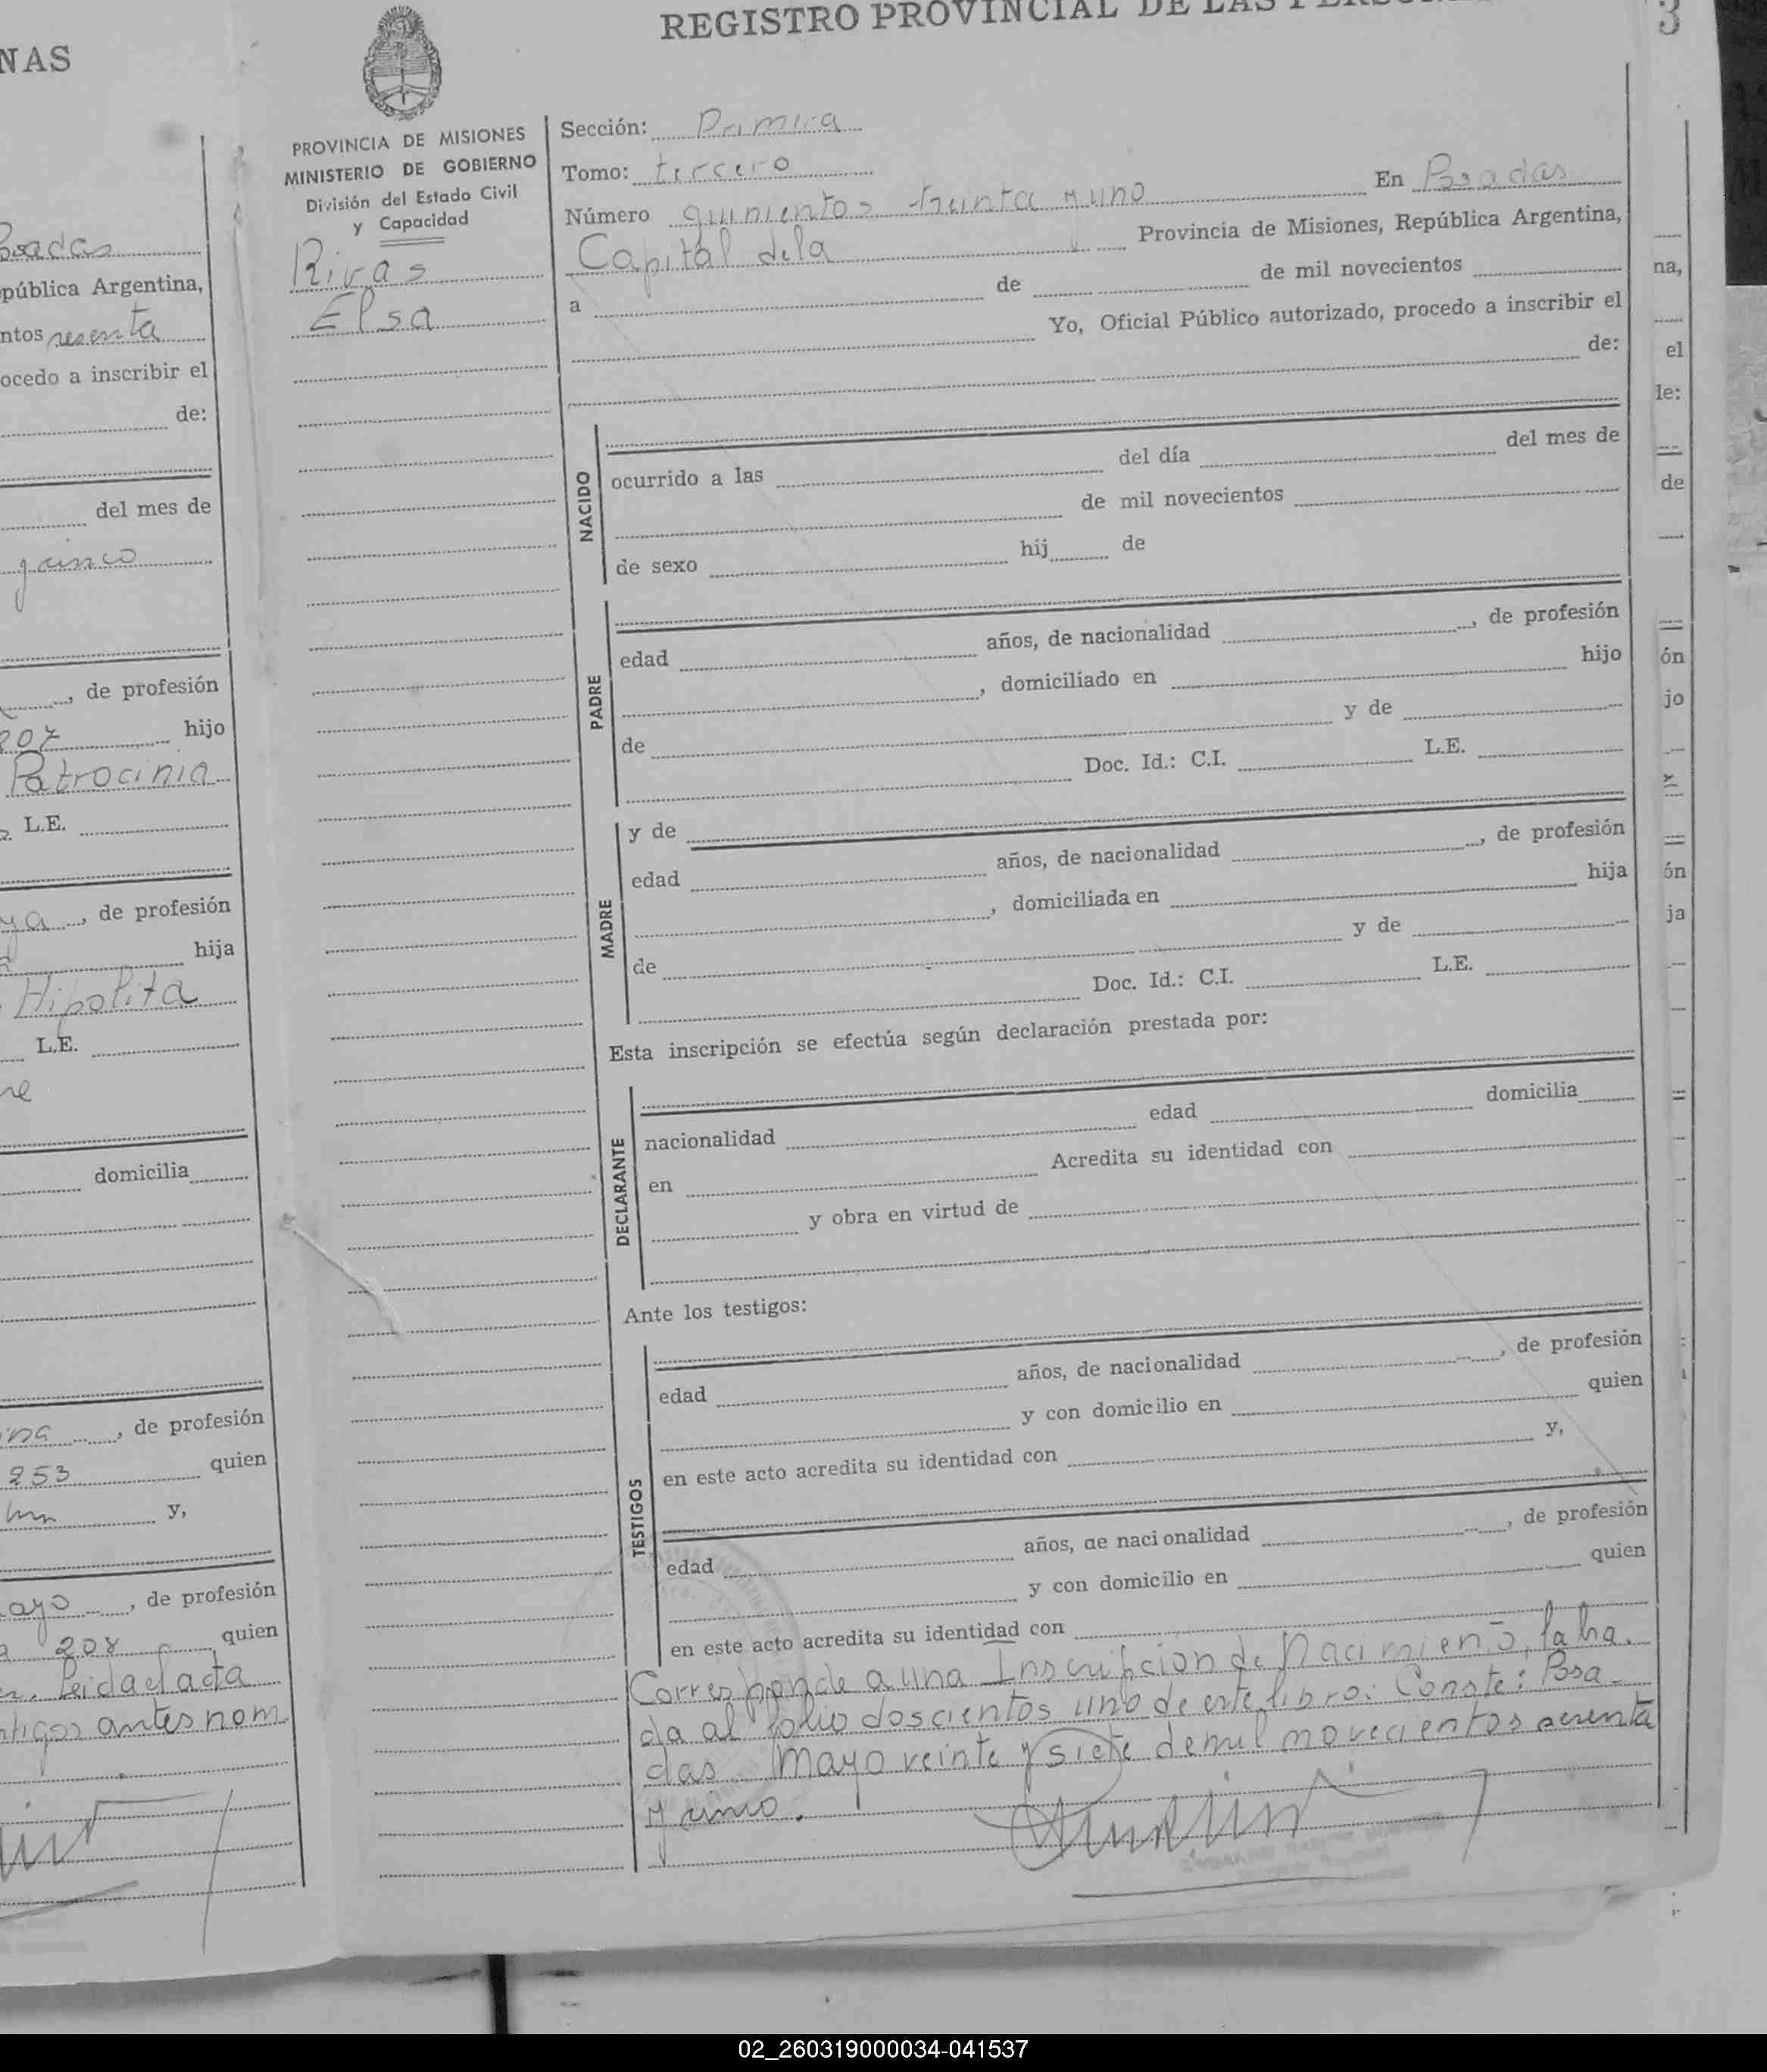 NAS
Posadas
pública Argentina,
ntos sesenta
ocedo a inscribir el
de:
del mes de
y cinco
, de profesión
207 hijo
Patrocinia
L.E.
ya, de profesión
hija
Hipolita
L.E.
domicilia
ina, de profesión
253 quien
y,
ayo, de profesión
208 quien
Leida el acta
ntigos antes nom
REGISTRO PROVINCIAL DE LAS
3
PROVINCIA DE MISIONES
MINISTERIO DE GOBIERNO
División del Estado Civil
y Capacidad
Rivas
Elsa
Sección: Primera
Tomo: tercero
Número quinientos treinta y uno En Posadas
Capital de la Provincia de Misiones, República Argentina,
a de de mil novecientos
Yo, Oficial Público autorizado, procedo a inscribir el
de:
NACIDO
ocurrido a las del día del mes de
de mil novecientos
de sexo hij de
PADRE
edad años, de nacionalidad , de profesión
, domiciliado en hijo
de y de
Doc. Id.: C.I. L.E.
MADRE
y de
edad años, de nacionalidad , de profesión
, domiciliada en hija
de y de
Doc. Id.: C.I. L.E.
Esta inscripción se efectúa según declaración prestada por:
DECLARANTE
nacionalidad edad domicilia
en Acredita su identidad con
y obra en virtud de
Ante los testigos:
TESTIGOS
edad años, de nacionalidad , de profesión
y con domicilio en quien
en este acto acredita su identidad con y,
edad años, de nacionalidad , de profesión
y con domicilio en quien
en este acto acredita su identidad con
Corresponde a una Inscripcion de Nacimiento, labra.
da al folio doscientos uno de este libro: Conste: Posa-
das Mayo veinte y siete de mil novecientos sesenta
y cinco.
na,
el
le:
de
ón
jo
ón
ja
02_260319000034-041537